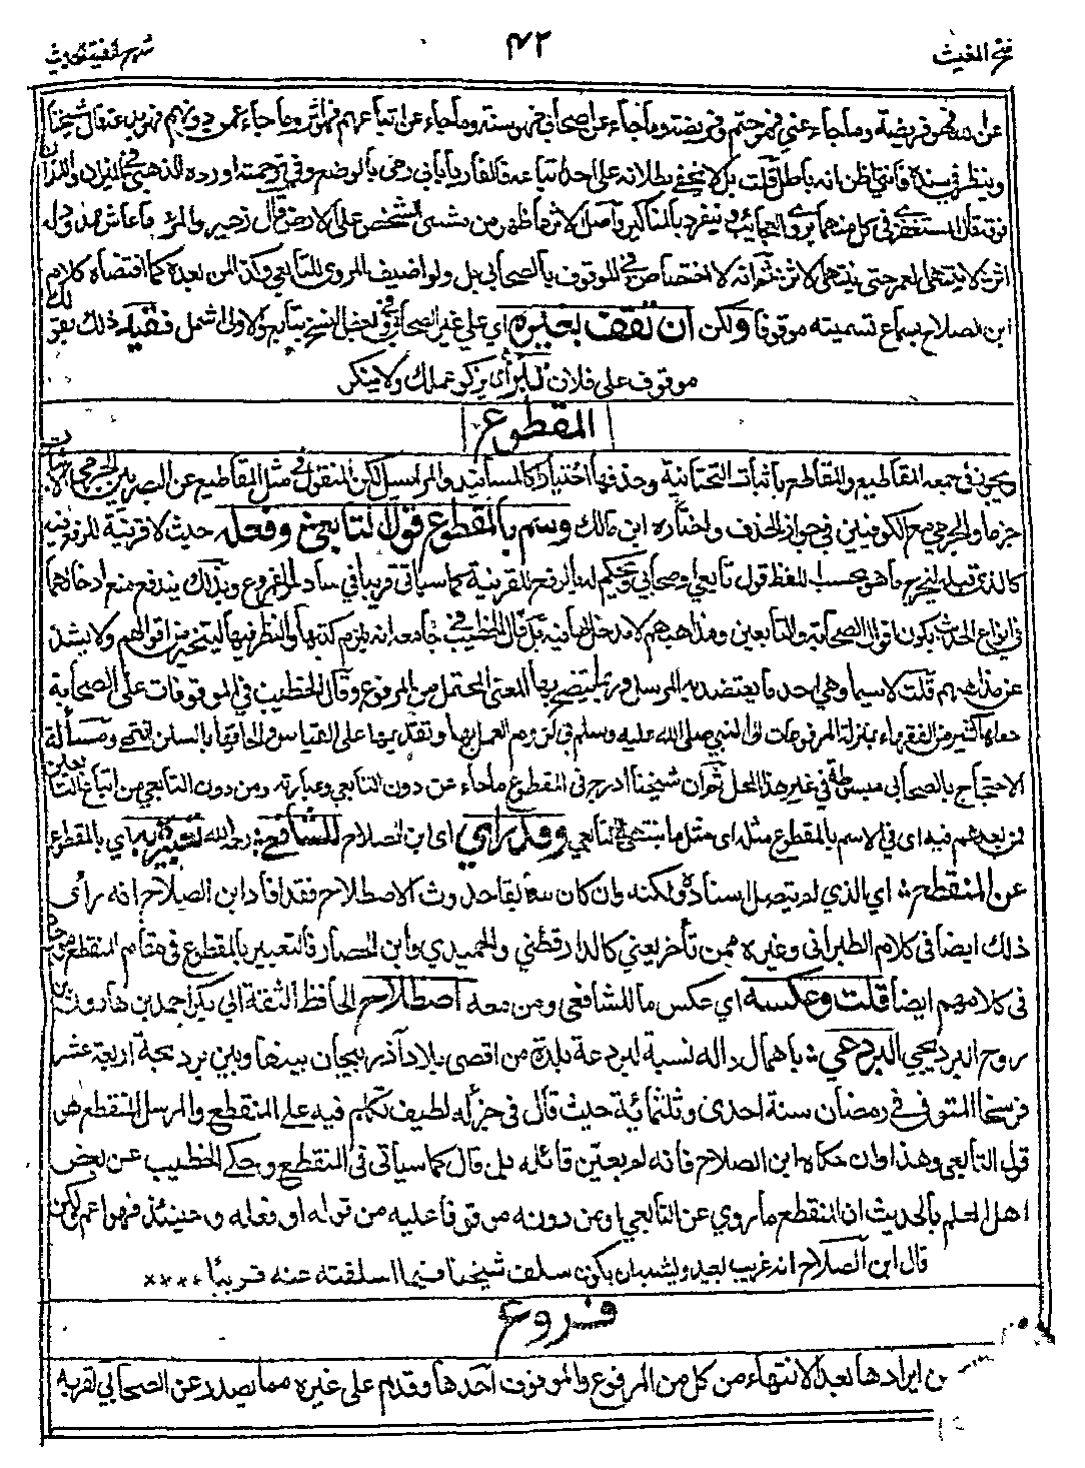 فتح المغيث
٤٢
شرح الفية الحديث
عن الله فهو فريضة وما جاء عني فهو حتم وفريضة وما جاء عن اصحابي فهو سنة وما جاء عن اتباعهم فهو اثر وما جاء عمن دونهم فهو بدعة قال شيخنا
وينظر في سنده فانني اظن انه باطل قلت بل لا يخفى بطلانه على احد اتباعه فالفاريابي رمي بالوضع وفي ترجمته اورده الذهبي في الميزان والذي
فوقه قال المستغفري في كل منهما يروي العجائب وينفرد بالمناكير واصل الاثر ما ظهر من مشي الشخص على الارض قال زهير والمرء ما عاش ممدود له
اثر لا ينتهي العمر حتى ينتهي الاثر ثم انه لا اختصاص في الموقوف بالصحابي بل ولو اضيف المروي للتابعي وكذا لمن بعده كما اقتضاه كلام
ابن الصلاح ساغ تسميته موقوفا ولكن ان تقف بغيره اي على غير الصحابي وفي بعض النسخ بتابع والاول اشمل فقيد ذلك بقولك
موقوف على فلان تبر اي يزكو عملك ولا ينكر
المقطوع
ويجوز في جمعه المقاطيع والمقاطع باثبات التحتانية وحذفها اختيارا كالمسانيد والمراسيل لكن المنقول في مثل المقاطيع عن البصريين سوى الجرمي الاثبات
جزما والجرمي مع الكوفيين في جواز الحذف واختاره ابن مالك وسم بالمقطوع قول التابعي وفعله حيث لا قرينة للرفع فيه
كالذي قبله ليخرج ما هو بحسب اللفظ قول تابعي او صحابي ويحكم له بالرفع للقرينة كما سيأتي قريبا في سادس الفروع وبذلك يندفع منع ادخالهما
في انواع الحديث بكون اقوال الصحابة والتابعين ومذاهبهم لا مدخل لها فيه بل قال الخطيب في جامعه انه يلزم كتبها والنظر فيها ليتخير من اقوالهم ولا يشذ
عن مذاهبهم قلت لا سيما وهي احد ما يعتضد به المرسل وربما يتضح بها المعنى المحتمل من المرفوع وقال الخطيب في الموقوفات على الصحابة
جعلها كثير من الفقهاء بمنزلة المرفوعات الى النبي صلى الله عليه وسلم في لزوم العمل بها وتقديمها على القياس والحاقها بالسنن انتهى ومسألة
الاحتجاج بالصحابي مبسوطة في غير هذا المحل ثم ان شيخنا ادرج في المقطوع ما جاء عن دون التابعي وعبارته ومن دون التابعي من اتباع التابعين
فمن بعدهم فيه اي في الاسم بالمقطوع مثله اي مثل ما ينتهي الى التابعي وقد رأي اى ابن الصلاح للشافعي رحمه الله تعبيره به اي بالمقطوع
عن المنقطع اي الذي لم يتصل اسناده ولكنه وان كان سابقا حدوث الاصطلاح فقد افاد ابن الصلاح انه رأى
ذلك ايضا في كلام الطبراني وغيره ممن تأخر يعني كالدارقطني والحميدي وابن الحصار فالتعبير بالمقطوع في مقام المنقطع موجود
في كلامهم ايضا قلت وعكسه اي عكس ما للشافعي ومن معه اصطلاح الحافظ الثقة ابي بكر احمد بن هارون بن
روح البرديجي البردعي باهمال داله نسبة لبردعة بلدة من اقصى بلاد آذربيجان بينها وبين برديجة اربعة عشر
فرسخا المتوفى في رمضان سنة احدى وثلثمائة حيث قال في جزء له لطيف تكلم فيه على المنقطع والمرسل المنقطع هو
قول التابعي وهذا وان حكاه ابن الصلاح فانه لم يعين قائله بل قال كما سيأتي في المنقطع وحكى الخطيب عن بعض
اهل العلم بالحديث ان المنقطع ما روي عن التابعي او من دونه موقوفا عليه من قوله او فعله وحينئذ فهو اعم لكن
قال ابن الصلاح انه غريب بعيد ويشبه ان يكون سلف شيخنا فيما اسلفته عنه قريبا ****
فروع
ن ايرادها بعد الانتهاء من كل من المرفوع والموقوف احدها وقدم على غيره مما يصدر عن الصحابي لقربه